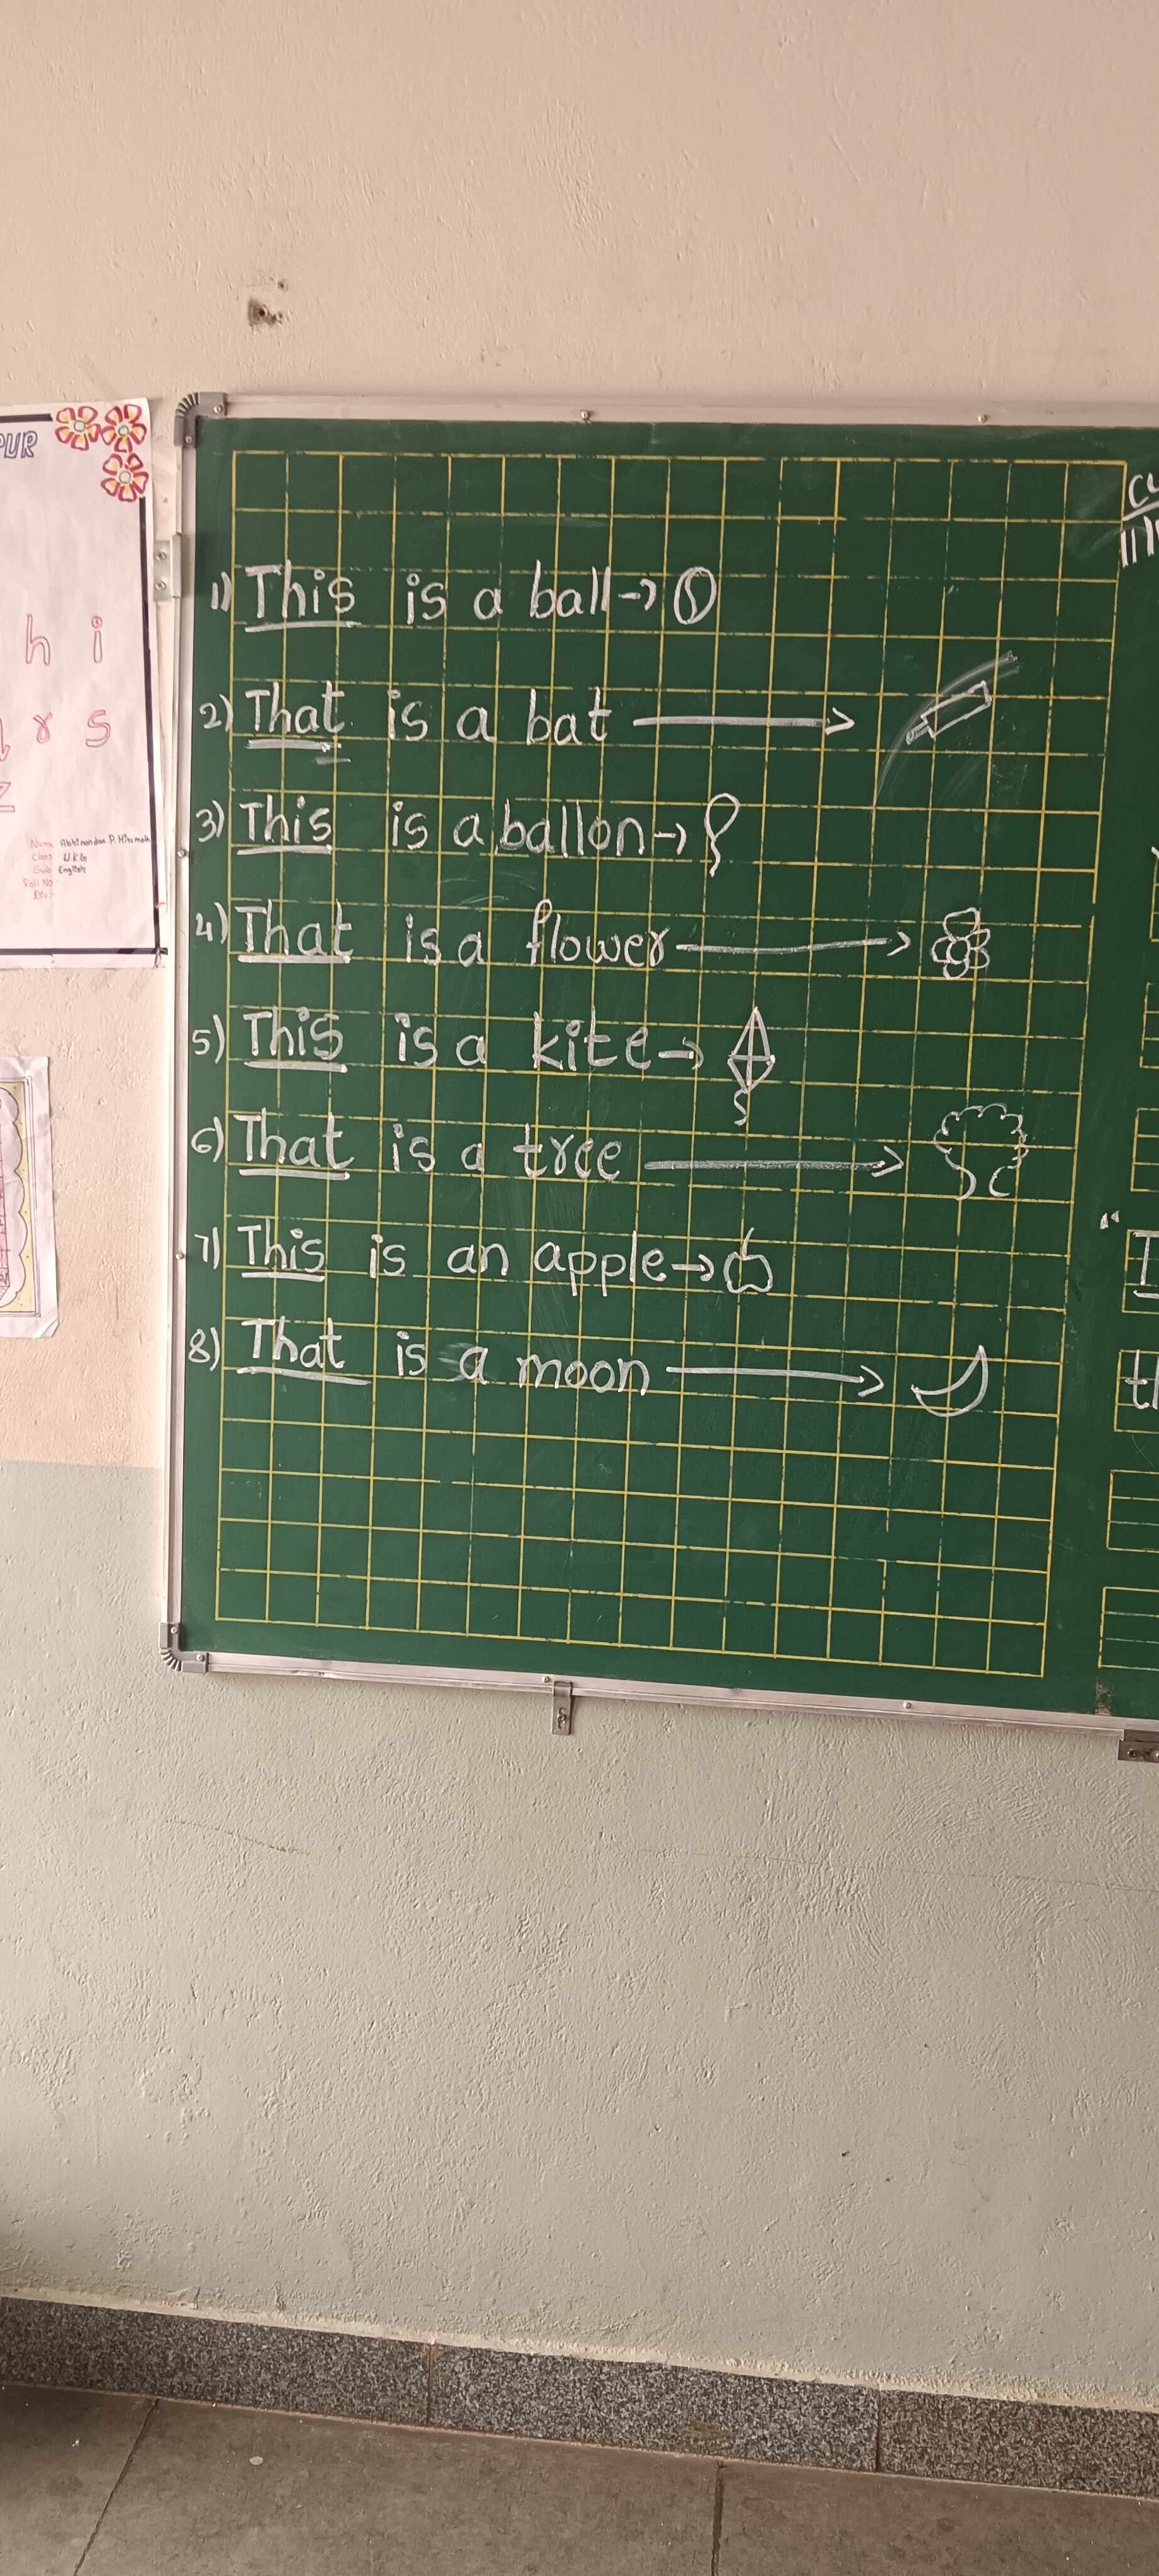 PUR
h i
r s
z
Name Abhinandan P. Hiremath
Class U.K.G
Sub English
Roll No
Div:
1) This is a ball →
2) That is a bat →
3) This is a ballon →
4) That is a flower →
5) This is a kite →
6) That is a tree →
7) This is an apple →
8) That is a moon →